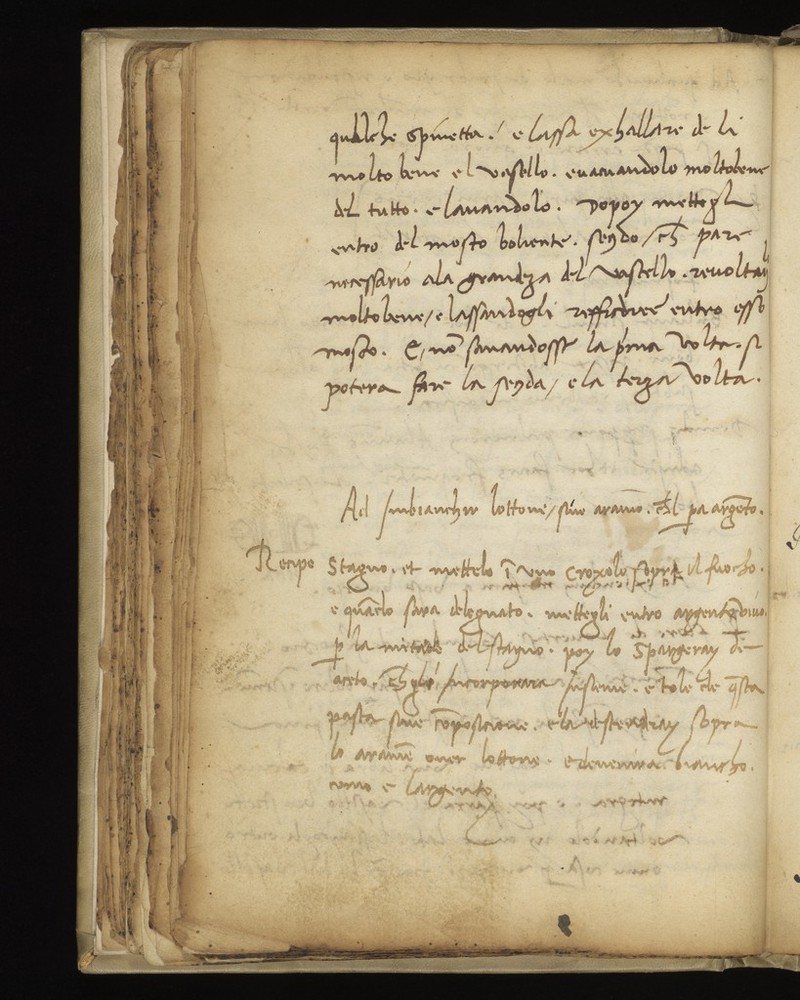 qualche spinetta. / e lassa exhallare de li
molto bene el vasello. euacuandolo moltobene
del tutto. e lauandolo. Dopoy mettegli
entro del mosto boliente. sendo / ch̃ pare
necessario ala grandeza del vasello. reuoltay
moltobene / e lassandogli reffredire entro esso
mosto. E, no͂ sanandosse la p͂ma volta. si
potera fare la seg͂da / e la terza volta.
Ad imbianchir lottone / siue aramo. ch̃l para argento.
Recipe Stagno. et mettelo ĩ vno Croxolo sopra il fuocho.
e qua͂do sara delegnato. mettegli entro argento viuo.
p̱ la mitade del stagno. poy lo Spargeray de
aceto. ch̃ gli incorporara insieme. e tole de q͂sta
pasta siue co͂positione. e la destenderay sopra
lo arame ouer lottone. e deuenira biancho.
como e largento.